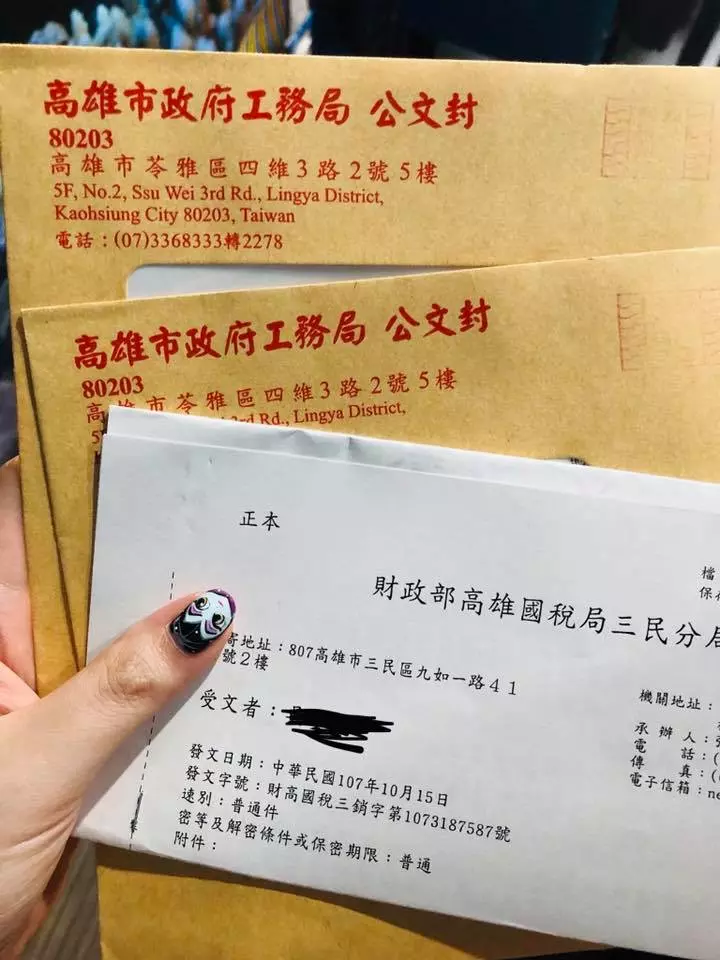 高雄市政府工務局 公文封
80203
高雄市苓雅區四維3路2號5樓
5F, No.2, Ssu Wei 3rd Rd., Lingya District,
Kaohsiung City 80203, Taiwan
電話：(07)3368333轉2278
高雄市政府工務局 公文封
80203
高雄市苓雅區四維3路2號5樓
3rd Rd., Lingya District,
正本
檔
保
財政部高雄國稅局三民分局
寄地址：807高雄市三民區九如一路41
號2樓
受文者：
發文日期：中華民國107年10月15日
發文字號：財高國稅三銷字第1073187587號
速別：普通件
密等及解密條件或保密期限：普通
附件：
機關地址：
承辦人：
電話：(
傳真：(
電子信箱：ne